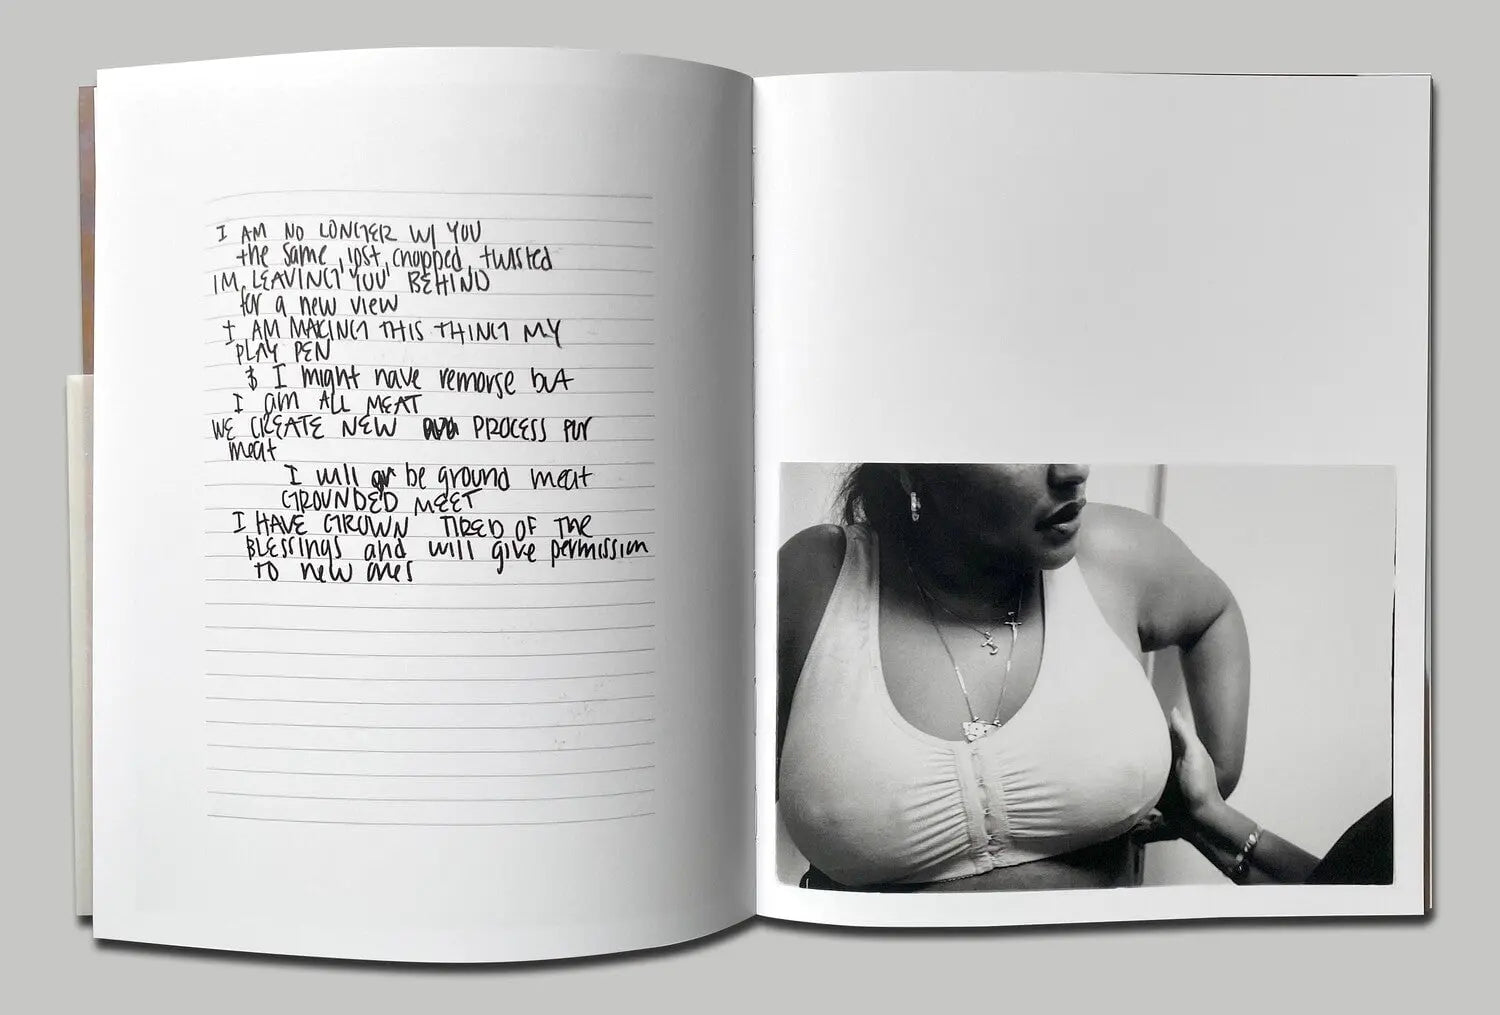 I AM NO LONGER W/ YOU
the same, lost, chopped, twisted
IM LEAVING YOU BEHIND
for a new view
I AM MAKING THIS THING MY
PLAY PEN
& I might have remorse but
I am ALL MEAT
WE CREATE NEW PROCESS for
meat
I will be ground meat
GROUNDED MEET
I HAVE GROWN TIRED OF THE
BLESSINGS and will give permission
TO new ones